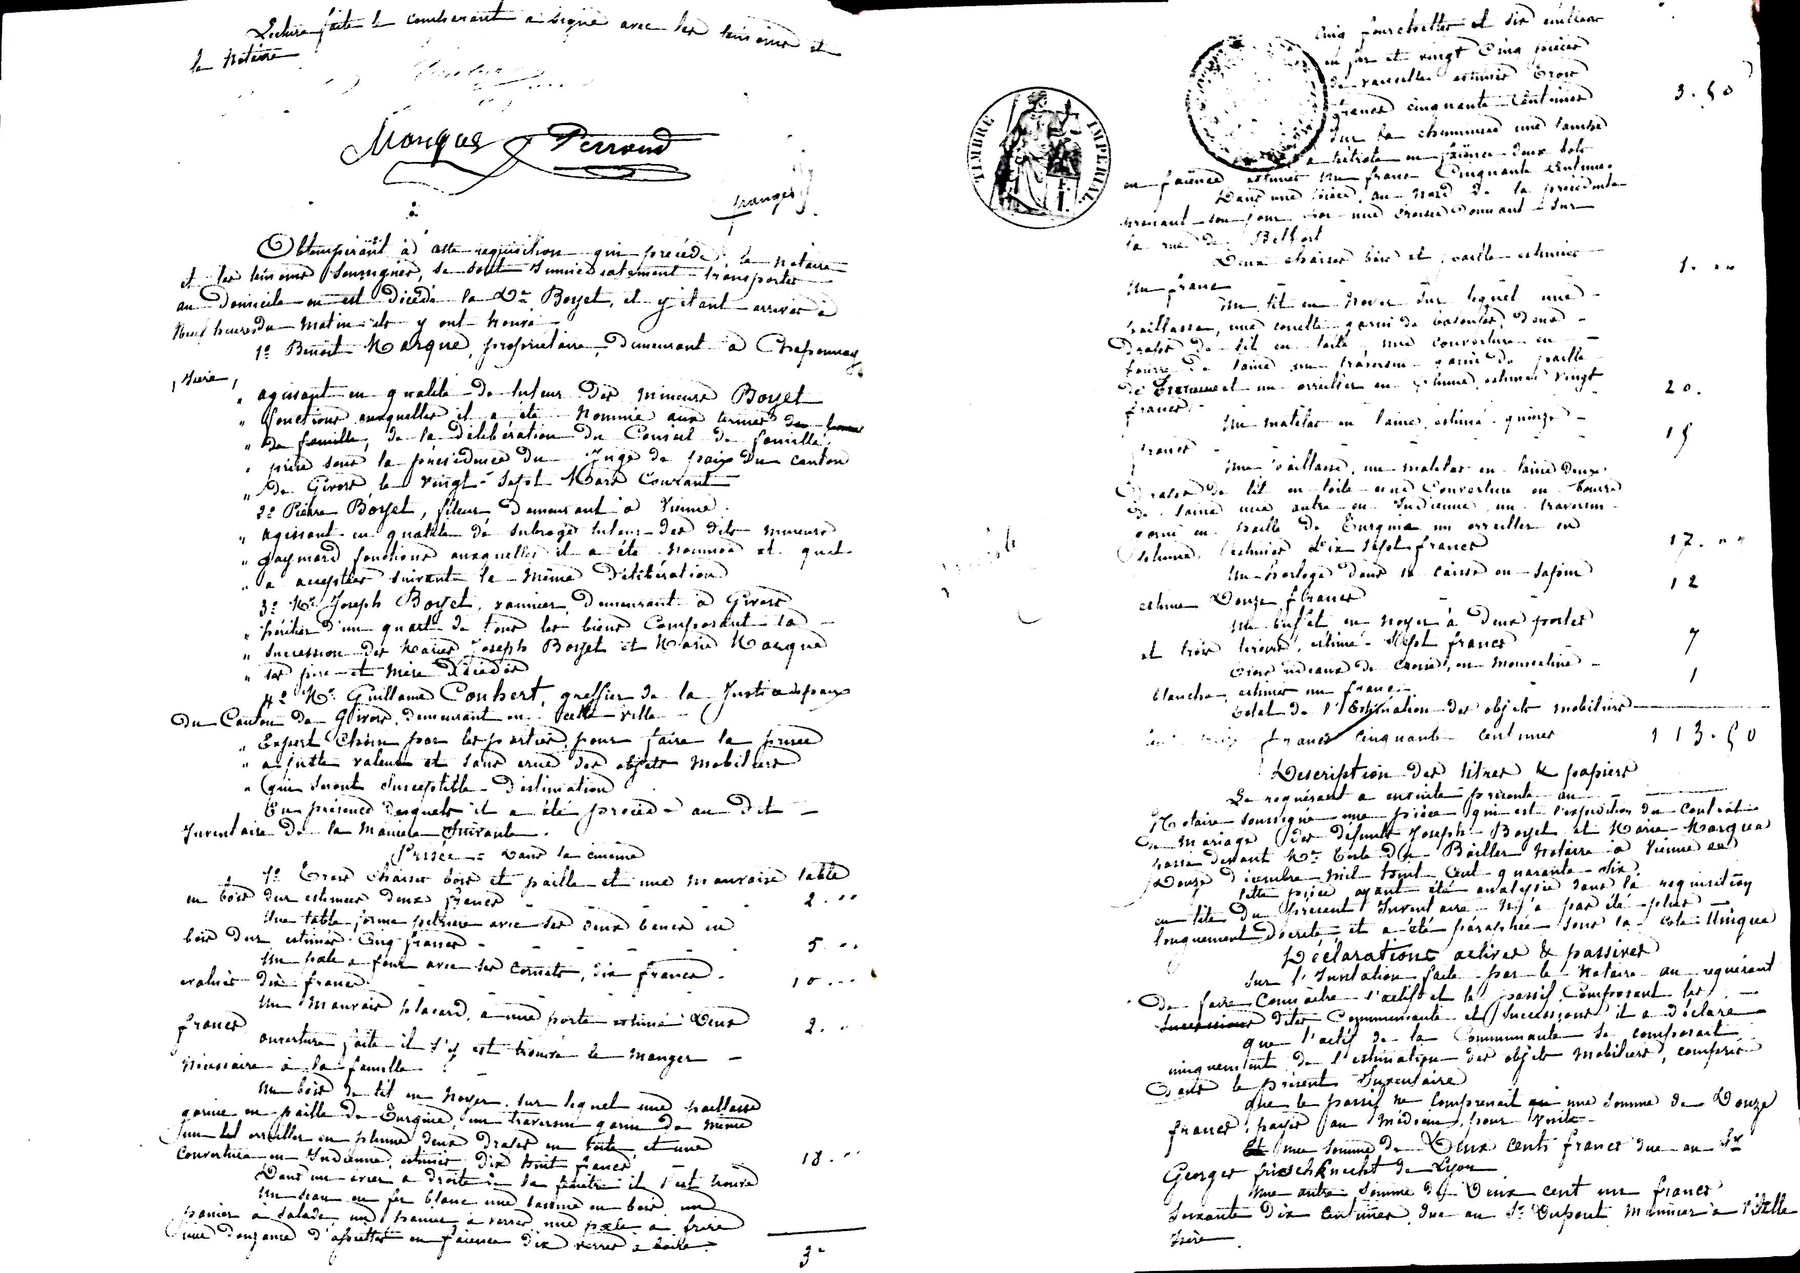 Lecture faite le comparant a signé avec les témoins et
le Notaire
Marque Perraud
Obtempérant à cette requisition qui précède, le notaire
et les témoins soussignés, se sont immédiatement transportés
au Domicile où est décédé la De Boyet, et y étant arrivés à
Neuf heures du matin ils y ont trouvé
1º Benoit Marque, propriétaire, demeurant à Chaponnay
, Isère,
" agissant en qualité de tuteur des mineurs Boyet
" fonctions auxquelles il a été Nommé aux termes
" de famille, de la délibération du Conseil de famille,
" prise sous la présidence du Juge de paix du canton
" De Givors le vingt-sept Mars Courant
2º Pierre Boyet, fileur demeurant à Vienne
" agissant en qualité de subrogé tuteur des dits mineurs
" fonctions auxquelles il a été nommé et qu'il
" a acceptées suivant la même Délibération
3º Mr Joseph Boyet, vannier, demeurant à Givors
" héritier d'un quart de tous les biens composant la
" succession des Mariés Joseph Boyet et Marie Marque
" ses père et mère Décédés
4º Mr Guillaume Coubert, greffier de la Justice de paix
Du Canton de Givors, demeurant en cette ville
" Expert choisi par les parties pour faire la prisée
" a juste valeur et sans crue des objets mobiliers
" qui seront susceptible d'estimation
En présence desquels il a été procédé au dit
Inventaire de la Manière suivante.
Prisée = Dans la cuisine
1º Trois chaises bois et paille et une mauvaise table
en bois dur estimées deux francs 2. "
Une table forme pétrière avec ses deux bancs en
bois dur estimés Cinq francs 5. "
Un poele a four avec ses cornets, dix francs.
évalués dix francs 10 "
Un mauvais placard, a une porte estimé Deux
francs 2. "
ouverture faite il s'y est trouvé le manger
Nécessaire à la famille
Un bois de lit en Noyer sur lequel une paillasse
garnie en paille de Turquie, un traversin garni de même
un oreiller en plume deux draps en toile, et une
Couverture en Indienne, estimés dix huit francs 18. "
Dans un évier a droite de la fenêtre il s'est trouvé
Un seau en fer blanc une bassine en bois, un
panier a salade, un panier à verres, une poele a frire
une douzaine d'assiettes en faience dix verres à boire. 3 "
TIMBRE IMPERIAL
Cinq fourchettes et six cuilleres
en fer et vingt Cinq pièces
de vaisselle estimés Trois
francs cinquante Centimes 3.50
Sur la cheminée une lampe
a pétrole en faience deux bols
en faience estimés Un franc Cinquante Centimes.
Dans une pièce, au nord de la précédente
prenant son jour par une croisée Donnant sur
la rue de Belfort
Deux chaises bois et paille estimées
Un franc 1. "
Un lit en Noyer sur lequel une
paillasse, une couette garni de balouffes, deux
Draps de lit en toile, une couverture en
bourre de laine un traversin garni de paille
de Turquie et un oreiller en plume, estimés Vingt
francs. 20.
Un matelas en laine, estimé quinze
francs 15
Une paillasse, un matelas en laine deux
Draps de lit en toile une Couverture en bourre
de laine une autre en Indienne, un traversin
garni en paille de Turquie un oreiller en
plume, estimés Dix sept francs 17. "
Une horloge dans sa caisse en sapin
estimée Douze francs 12
Un buffet en noyer à Deux portes
et trois tiroirs, estimé Sept francs 7
Trois rideaux de croisée, en mousseline
blanche, estimés un franc. 1
Total de l'Estimation des objets mobiliers
francs cinquante centimes 113.50
Description des titres & papiers
Le requérant a ensuite présenté au
Notaire soussigné une pièce qui est l'expédition du Contrat
De mariage des défunts Joseph Boyet et Marie Marque
passé devant Me Notaire à Vienne le
Douze Décembre Mil huit Cent quarante-dix
Cette pièce ayant été analysée dans la requisition
en tête du présent Inventaire n'y a pas été plus
longuement décrite et a été paraphée sous la cote Unique
Déclarations actives & passives
Sur l'Invitation faite par le Notaire au requérant
De faire Connaître l'actif et le passif Composant les
successions dites Communauté et Successions il a déclaré
que l'actif de la Communauté se composait
uniquement de l'estimation des objets mobiliers, compris
Dans le présent Inventaire
Que le passif ne comprenait qu'une somme de Douze
francs, payée au médecin, pour visite
Et une somme de Deux cents francs due au Sr
Georges Frieschknecht de Lyon
Une autre somme de Deux cent un francs
Soixante dix centimes, due au Sr Dupont Meunier à l'Isle
Isère.